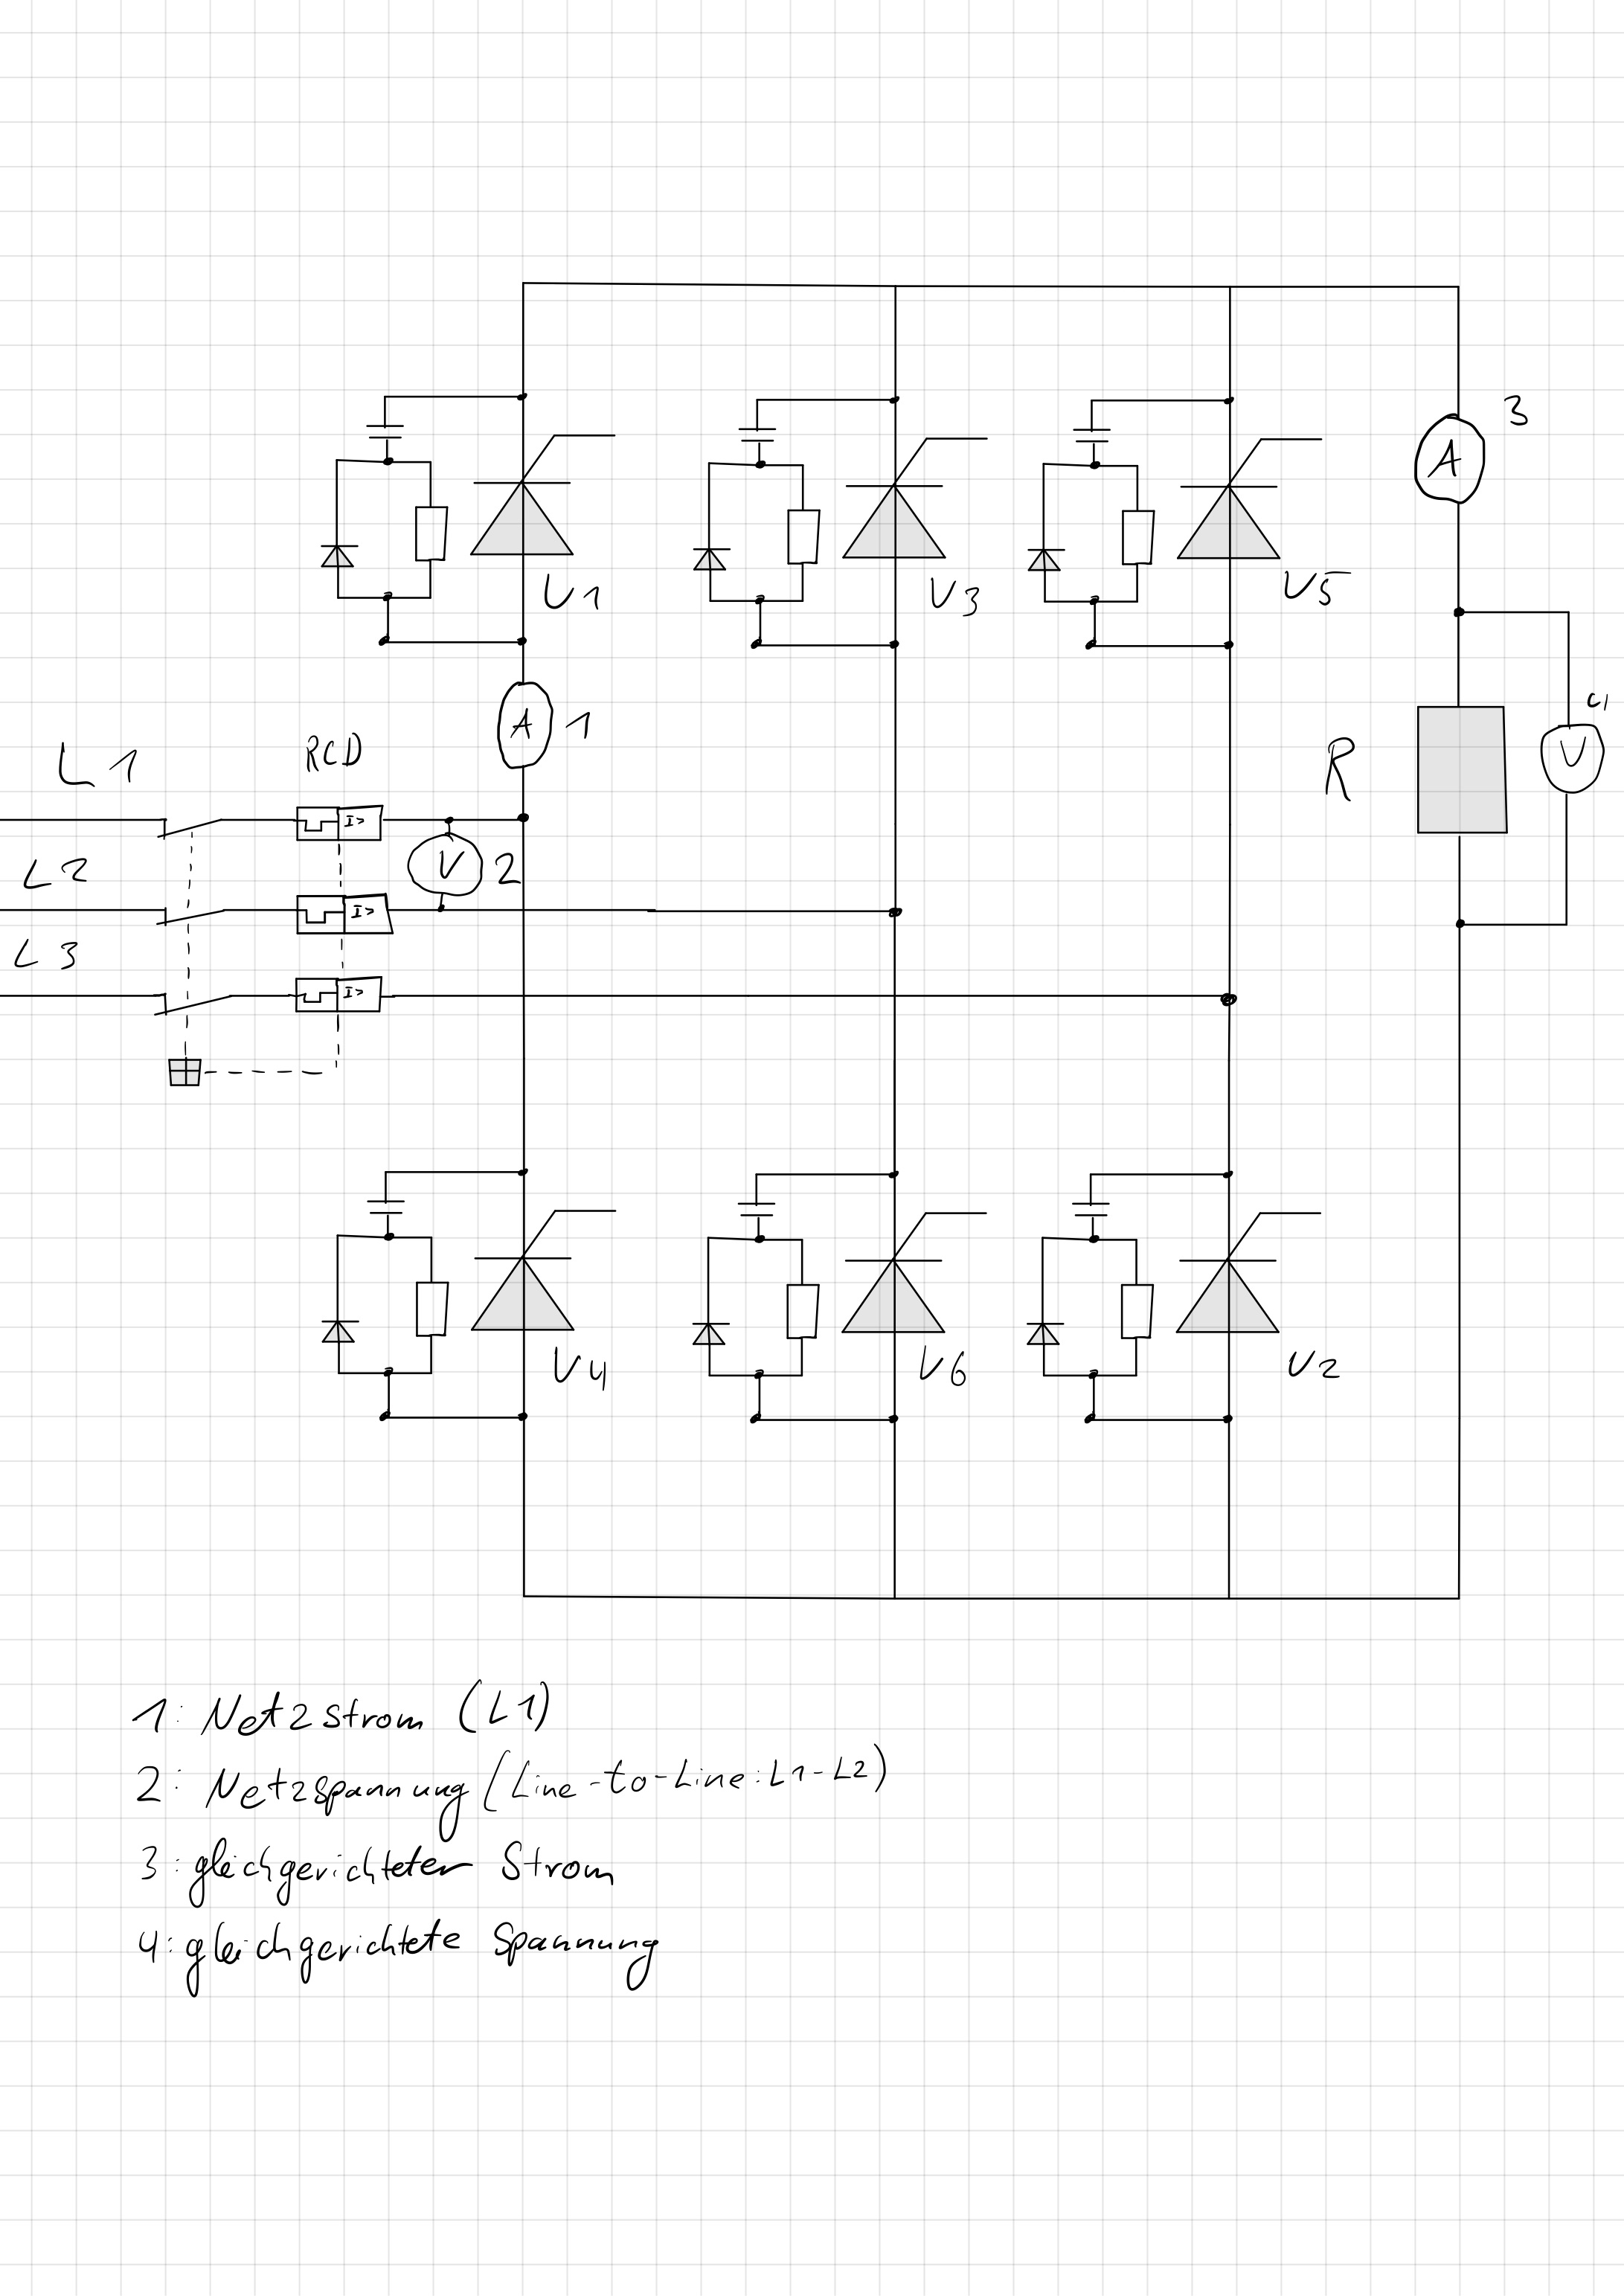 3
V1
V3
V5
A
A
1
4
L1
RCD
R
V
I>
L2
V
2
I>
L3
I>
V4
V6
V2
1: Netzstrom (L1)
2: Netzspannung (Line-to-Line: L1-L2)
3: gleichgerichteter Strom
4: gleichgerichtete Spannung